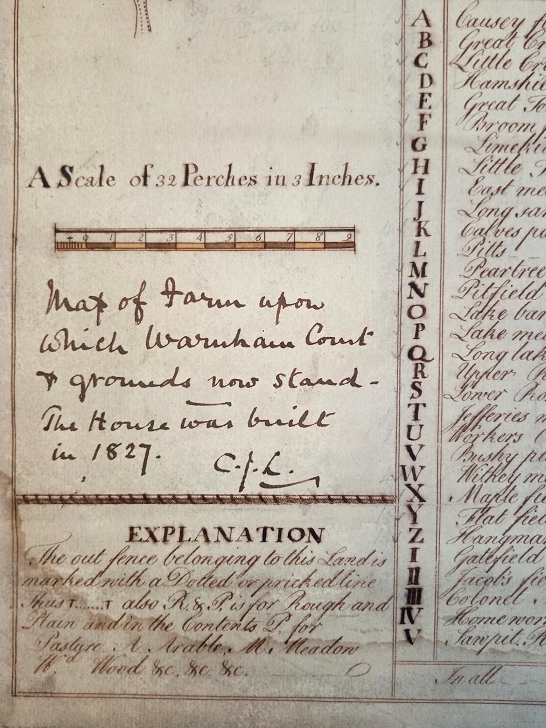 A Scale of 32 Perches in 3 Inches.
1 2 3 4 5 6 7 8 9
Map of Farm upon
which Warnham Court
& grounds now stand -
The House was built
in 1827.
C.J.L.
EXPLANATION
The out fence belonging to this Land is
marked with a Dotted or pricked line
thus T.......T also R. & P. is for Rough and
Plain and in the Contents P for
Pasture A. Arable. M. Meadow
Wd. Wood &c. &c. &c.
A Causey
B Great
C Little
D Hamshi
E Great
F Broom
G Limeki
H Little
I East me
J Long san
K Calves pa
L Pitts
M Peartree
N Pitfield
O Lake bar
P Lake mea
Q Long lak
R Upper
S Lower
T Jefferies m
U Workers
V Bushy
W Withey m
X Maple fie
Y Flat fiel
Z Hangman
I Gatefield
II Jacob's fie
III Colonel
IV Homewor
V Sawpit
In all